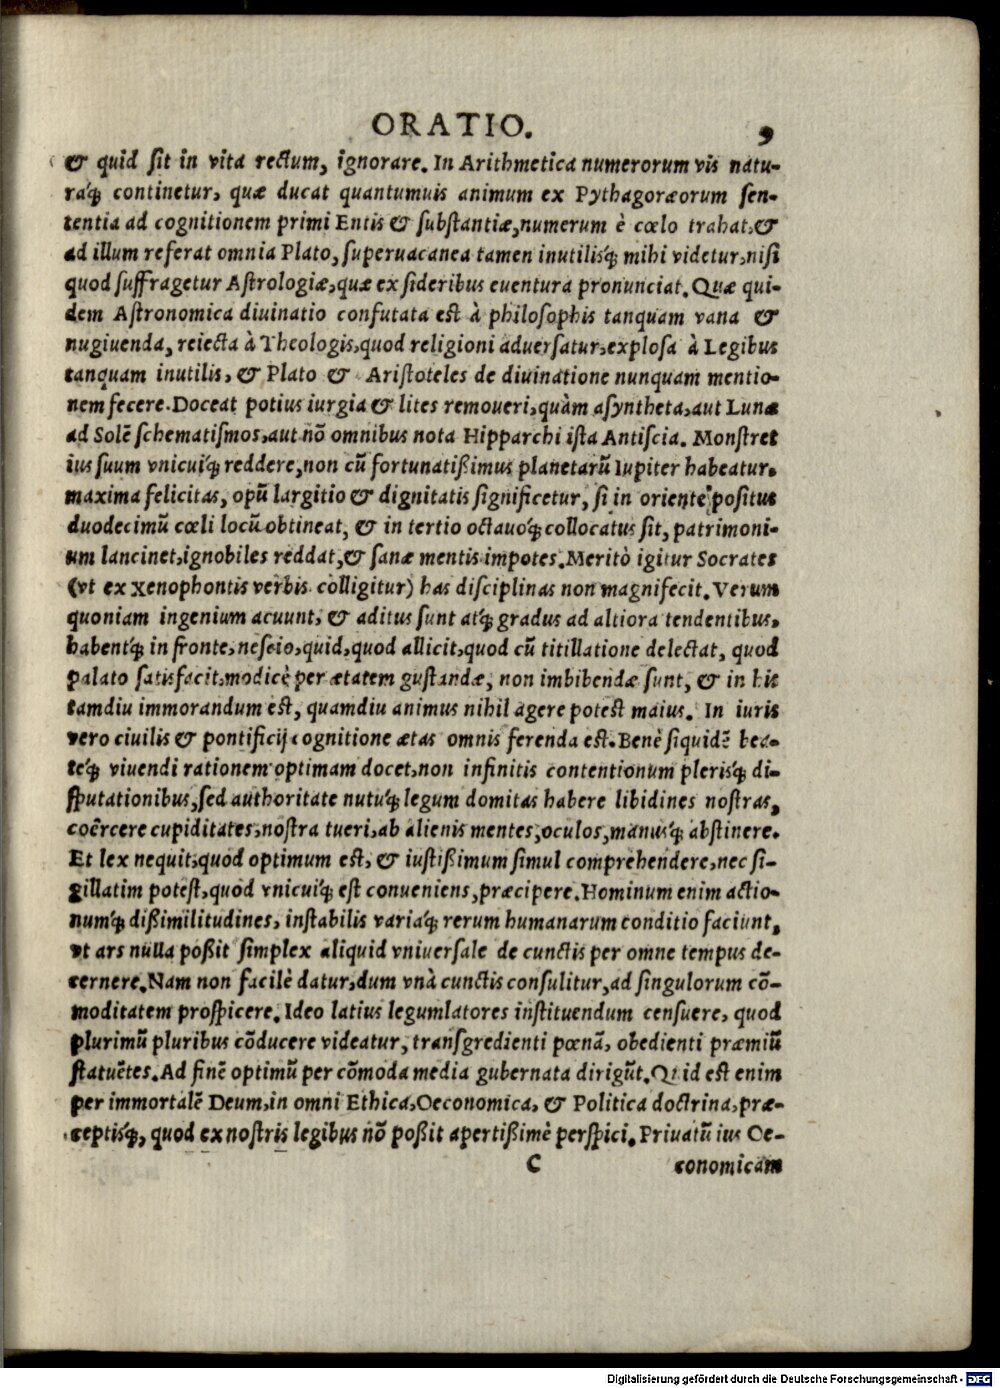 ORATIO. 9
& quid ſit in vita rectum, ignorare. In Arithmetica numerorum vis natu-
raq́; continetur, quæ ducat quantumuis animum ex Pythagoræorum ſen-
tentia ad cognitionem primi Entis & ſubſtantiæ, numerum è cœlo trahat, &
ad illum referat omnia Plato, ſuperuacanea tamen inutiliśq; mihi videtur, niſi
quod ſuffragetur Aſtrologiæ, quæ ex ſideribus euentura pronunciat. Quæ qui-
dem Aſtronomica diuinatio confutata eſt à philoſophis tanquam vana &
nugiuenda, reiecta à Theologis, quod religioni aduerſatur, exploſa à Legibus
tanquam inutilis, & Plato & Ariſtoteles de diuinatione nunquam mentio-
nem fecere. Doceat potius iurgia & lites remoueri, quàm aſyntheta, aut Lunæ
ad Solē ſchematiſmos, aut nō omnibus nota Hipparchi iſta Antiſcia. Monſtret
ius ſuum vnicuiq́; reddere, non cū fortunatißimus planetarū Iupiter habeatur,
maxima felicitas, opū largitio & dignitatis ſignificetur, ſi in oriente poſitus
duodecimū cœli locū obtineat, & in tertio octauoq́; collocatus ſit, patrimoni-
um lancinet, ignobiles reddat, & ſanæ mentis impotes. Meritò igitur Socrates
(vt ex Xenophontis verbis colligitur) has diſciplinas non magnifecit. Verum
quoniam ingenium acuunt, & aditus ſunt atq́; gradus ad altiora tendentibus,
habentq́; in fronte, neſcio, quid, quod allicit, quod cū titillatione delectat, quod
palato ſatisfacit, modicè per ætatem guſtandæ, non imbibendæ ſunt, & in his
tamdiu immorandum eſt, quamdiu animus nihil agere poteſt maius. In iuris
vero ciuilis & pontificij cognitione ætas omnis ferenda eſt. Benè ſiquidē bea-
teq́; viuendi rationem optimam docet, non infinitis contentionum pleriśq; di-
ſputationibus, ſed authoritate nutuq́; legum domitas habere libidines noſtras,
coërcere cupiditates, noſtra tueri, ab alienis mentes, oculos, manuśq; abſtinere.
Et lex nequit, quod optimum eſt, & iuſtißimum ſimul comprehendere, nec ſi-
gillatim poteſt, quod vnicuiq́; eſt conueniens, præcipere. Hominum enim actio-
numq́; dißimilitudines, inſtabilis variaq́; rerum humanarum conditio faciunt,
vt ars nulla poßit ſimplex aliquid vniuerſale de cunctis per omne tempus de-
cernere. Nam non facilè datur, dum vnà cunctis conſulitur, ad ſingulorum cō-
moditatem proſpicere. Ideo latius legumlatores inſtituendum cenſuere, quod
plurimū pluribus cōducere videatur, tranſgredienti pœnā, obedienti præmiū
ſtatuētes. Ad finē optimū per cōmoda media gubernata dirigūt. Quid eſt enim
per immortalē Deum, in omni Ethica, Oeconomica, & Politica doctrina, præ-
ceptiśq;, quod ex noſtris legibus nō poßit apertißimè perſpici. Priuatū ius Oe-
C conomicam
Digitalisierung gefördert durch die Deutsche Forschungsgemeinschaft - DFG